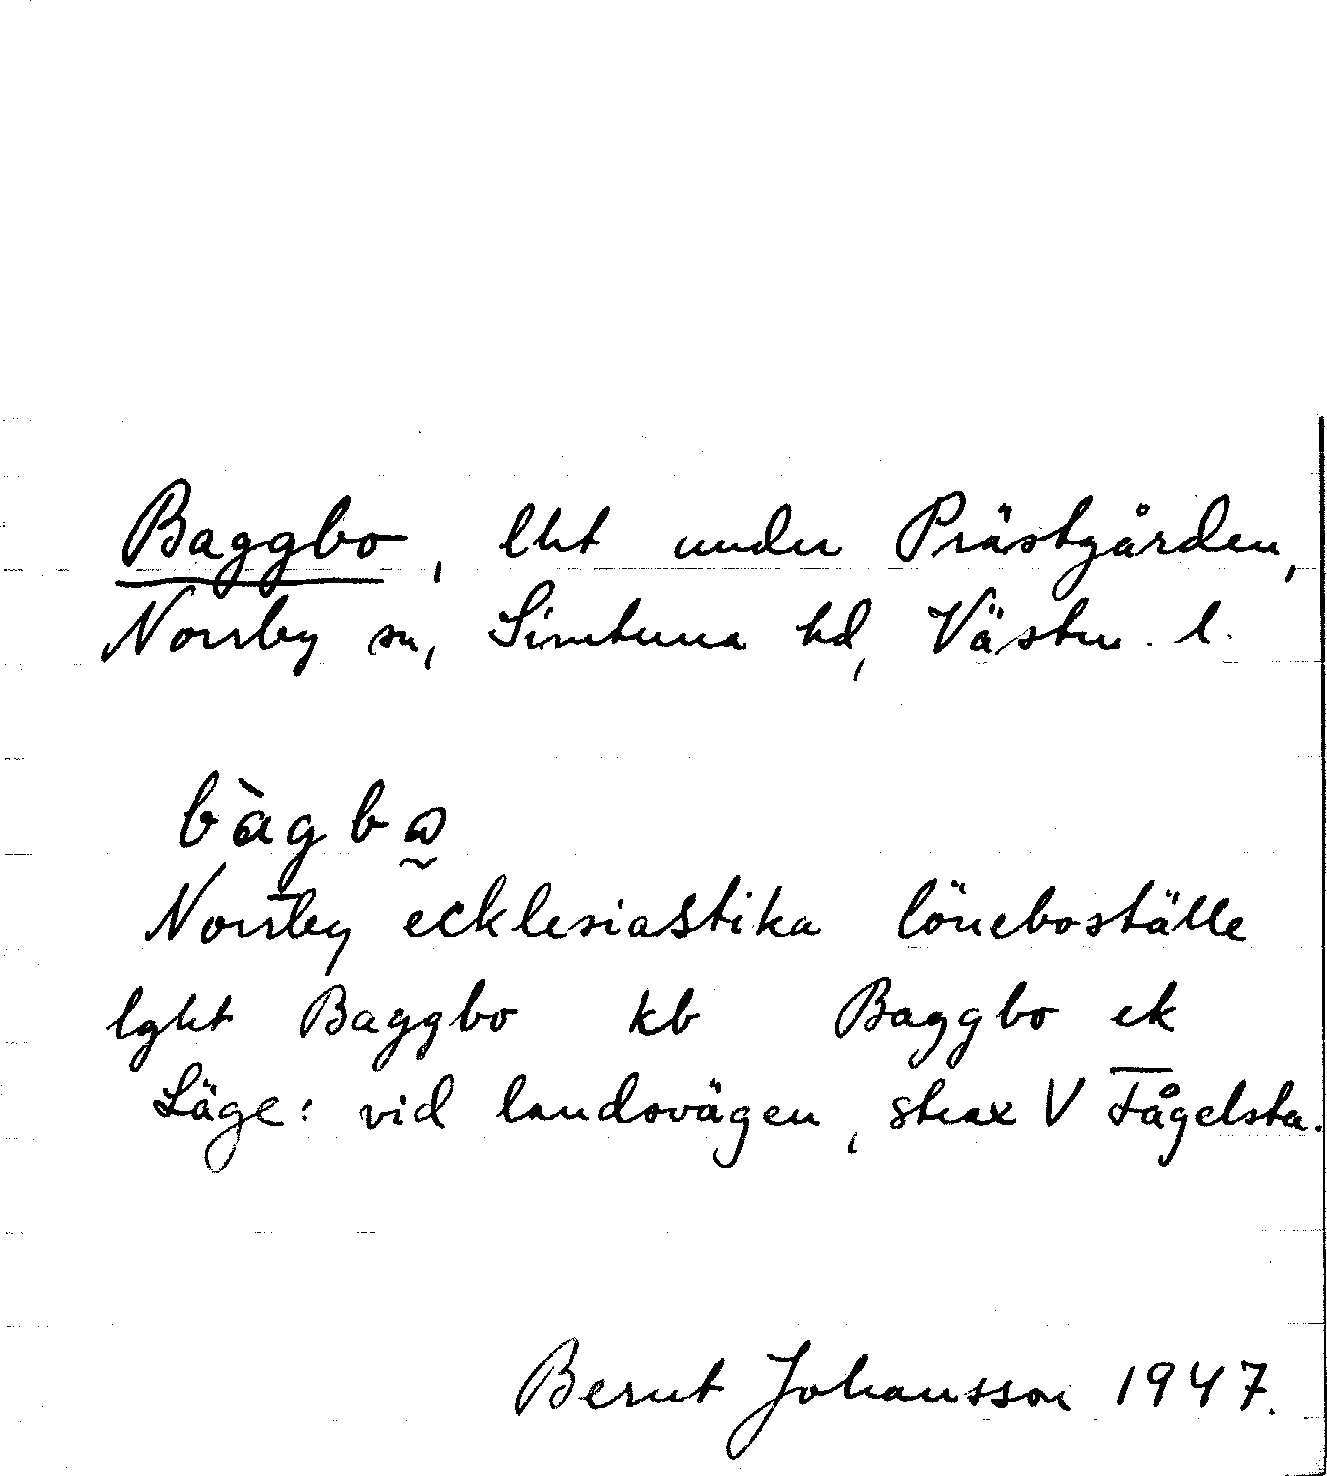 Baggbo, lht under Prästgården,
Norrby sn, Simtuna hd, Västm. l.
bàgbω̰
Norrby ecklesiastika löneboställe
lght Baggbo kb Baggbo ek
Läge: vid landsvägen, strax V Fågelsta.
Bernt Johansson 1947.